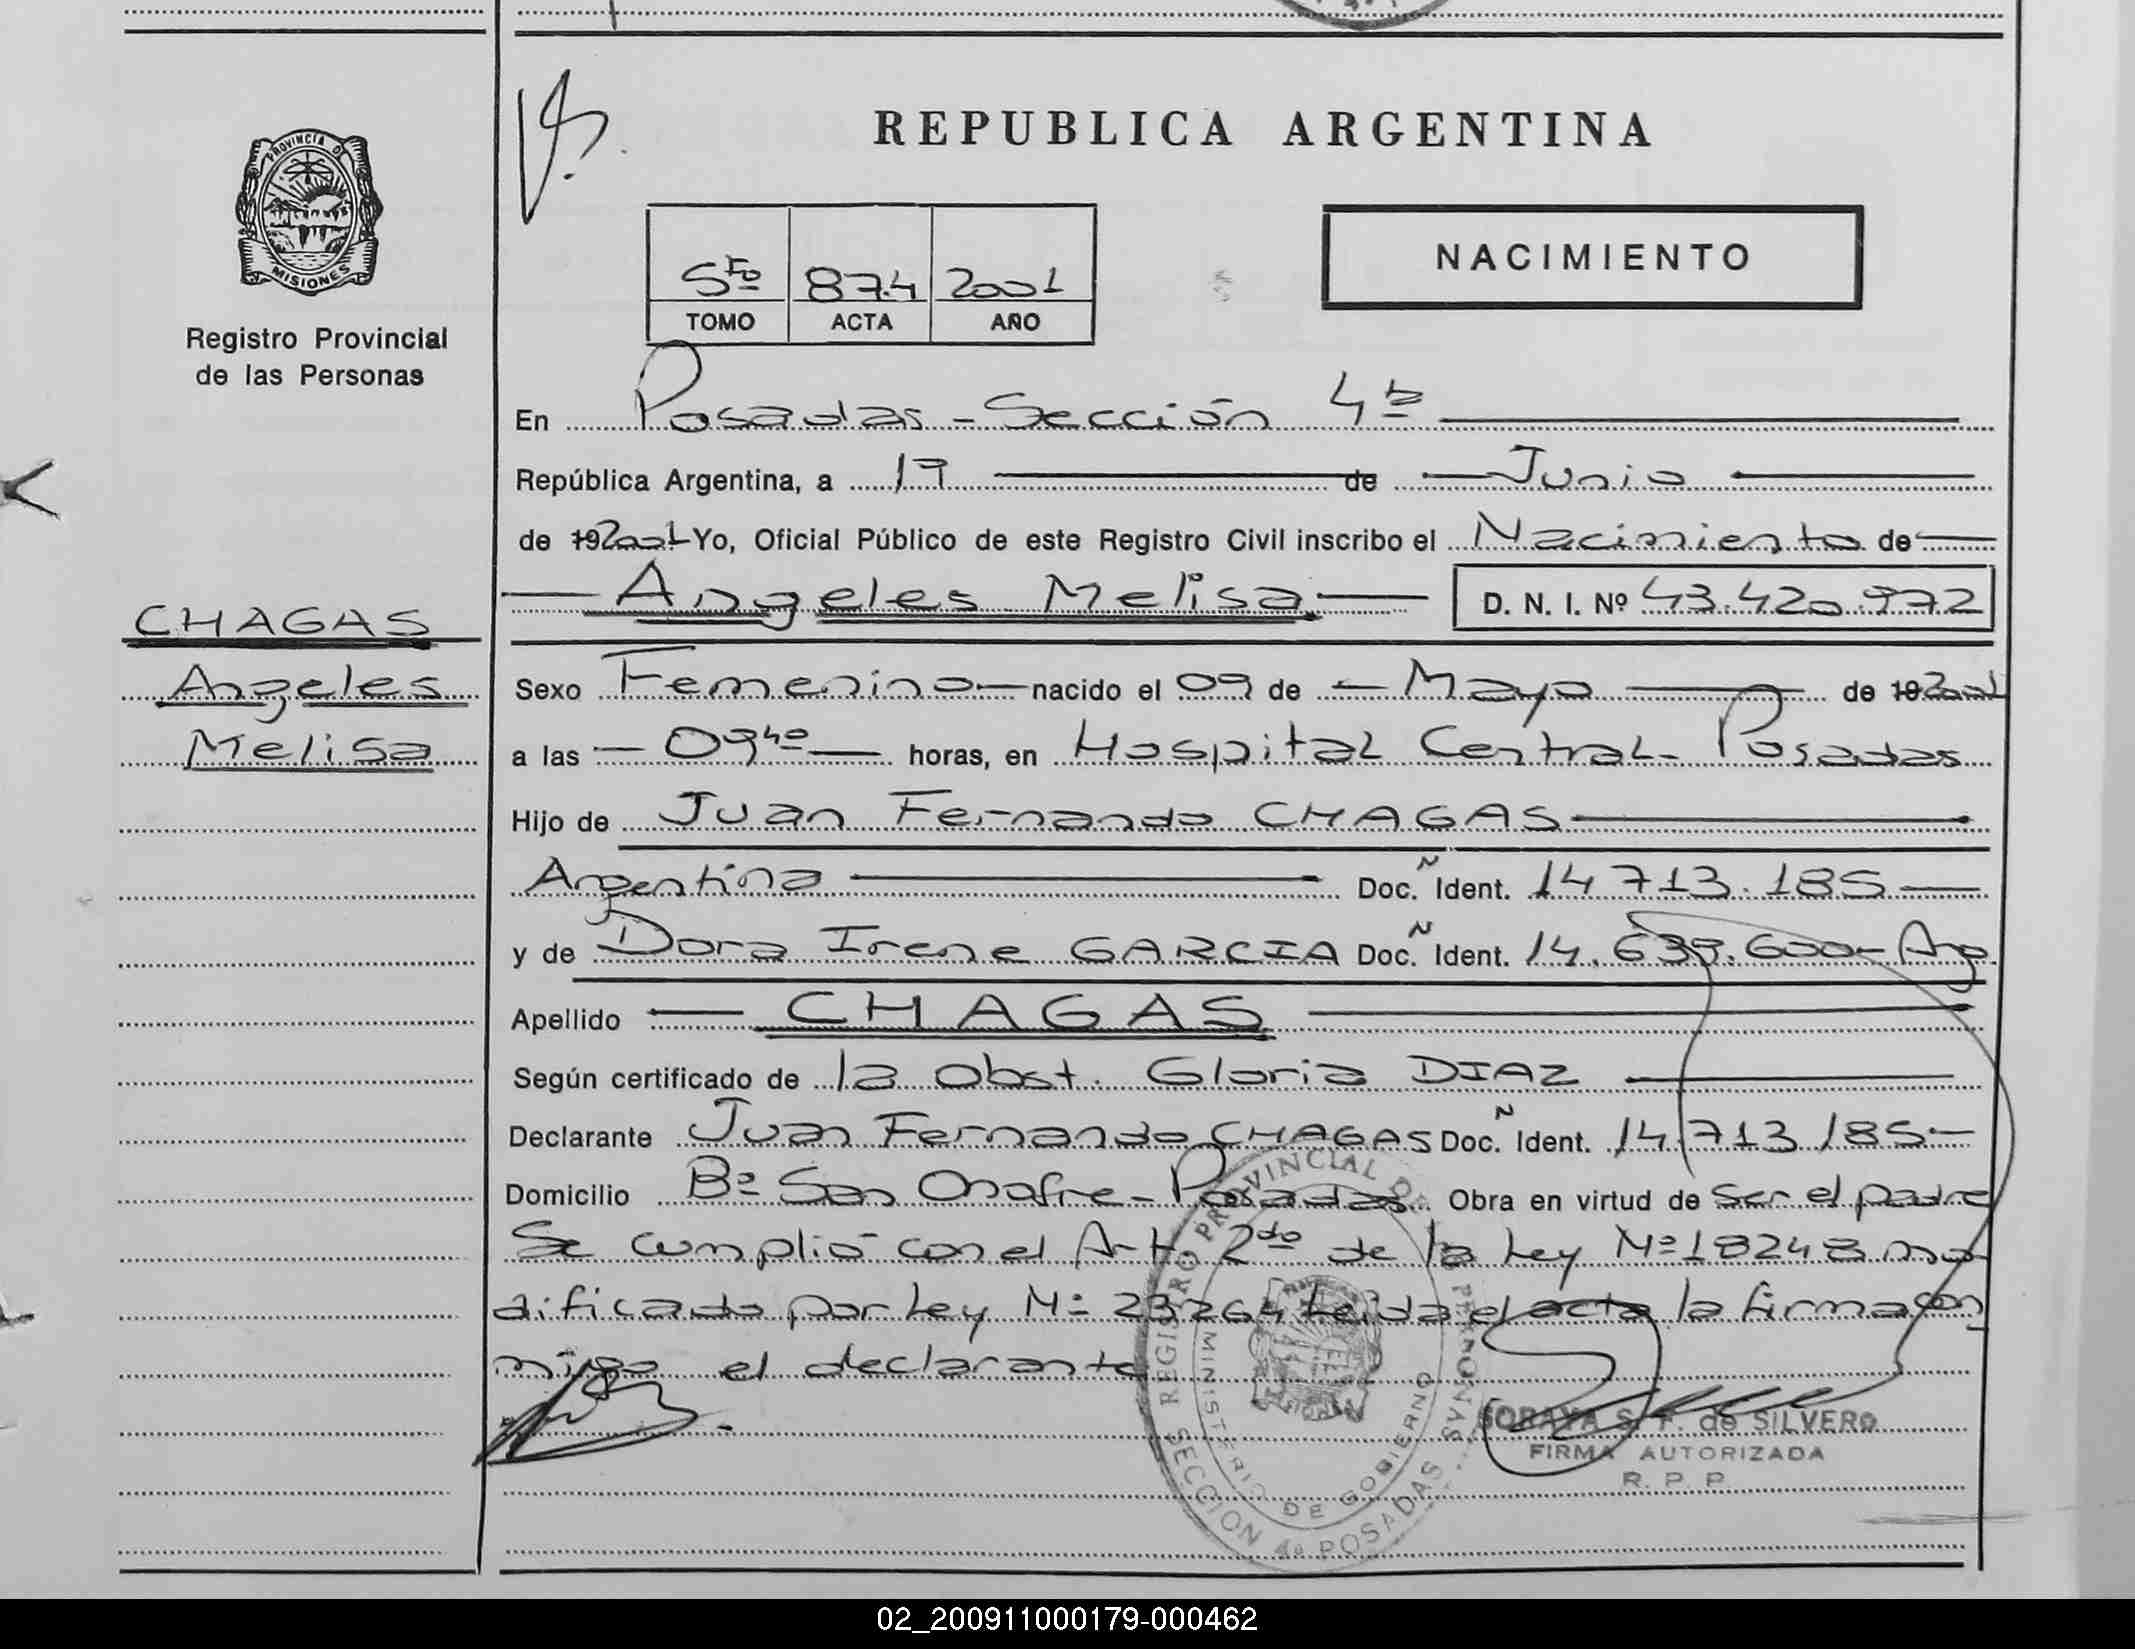 REPUBLICA ARGENTINA
PROVINCIA DE
MISIONES
Registro Provincial
de las Personas
NACIMIENTO
5to 874 2001
TOMO ACTA AÑO
En Posadas - Sección 4ta
República Argentina, a 19 de Junio
de 19 2001 Yo, Oficial Público de este Registro Civil inscribo el Nacimiento de
Angeles Melisa D. N. I. Nº 43.420.972
CHAGAS
Angeles
Melisa
Sexo Femenino nacido el 09 de Mayo de 19 2001
a las 09 40 horas, en Hospital Central - Posadas
Hijo de Juan Fernando CHAGAS
Argentina Doc. Ñ Ident. 14.713.185
y de Dora Irene GARCIA Doc. Ñ Ident. 14.639.600 - Arg
Apellido CHAGAS
Según certificado de la Obst. Gloria DIAZ
Declarante Juan Fernando CHAGAS Doc. Ñ Ident. 14.713.185
Domicilio Bº San Onofre - Posadas Obra en virtud de ser el padre
Se cumplió con el Art. 2do de la Ley Nº 18248 mo
dificado por Ley Nº 23264 Leída el acta la firma con
migo el declarante
REGISTRO PROVINCIAL DE PERSONAS
MINISTERIO DE GOBIERNO
SECCION 4ª POSADAS
SORAYA S. F. de SILVERO
FIRMA AUTORIZADA
R. P. P.
02_200911000179-000462